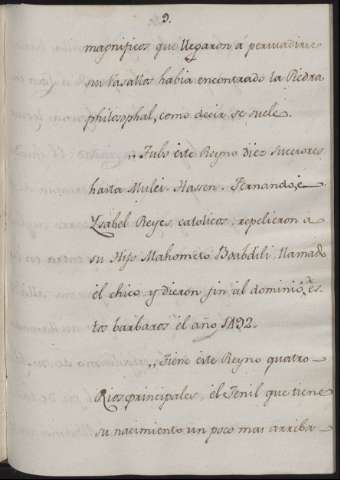 9.
magnificos que llegaron á persuadirse
su vasallos habia encontrado la Piedra
philosophal, como decir se suele.
,,Tubo este Reyno diez sucesores
hasta Mulei-Hassen. Fernando, é
Ysabel Reyes catolicos, repelieron a
su Hijo Mahometo Boabdili llamado
el chico y dieron fin al dominio, de es-
tos barbaros el año 1492.
,,Tiene este Reyno quatro
Rios principales, el Genil que tiene
su nacimiento un poco mas arriba